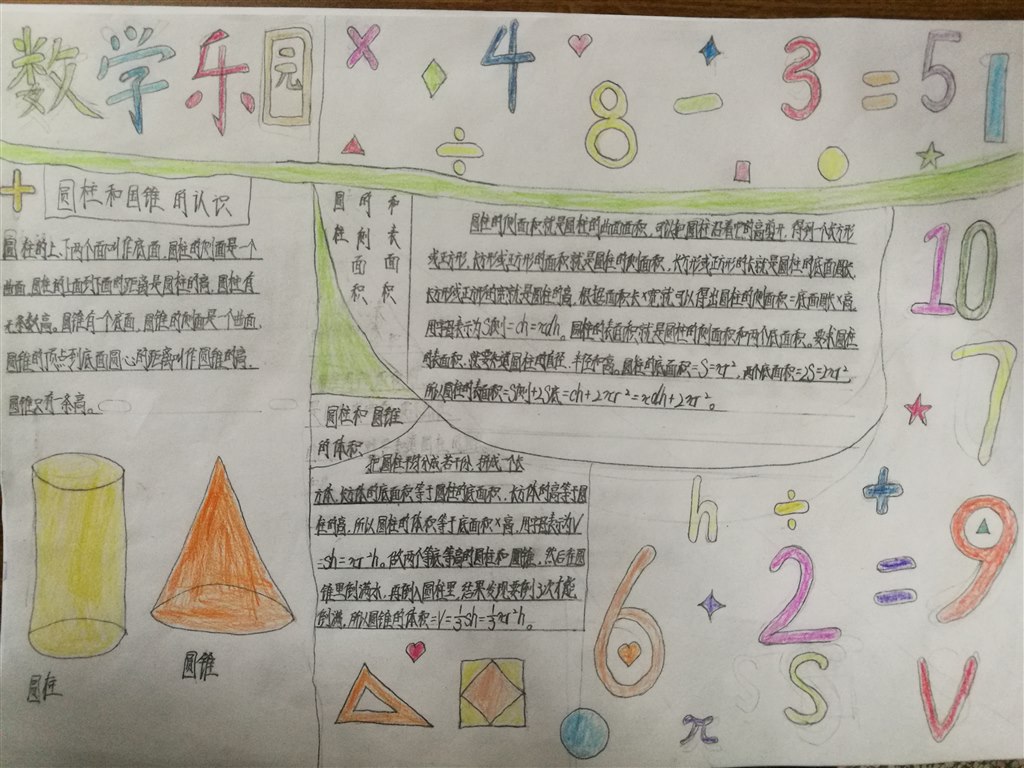 数学乐园
× 4 8 - 3 = 5 1
÷
+
圆柱和圆锥的认识
圆柱的上、下两个面叫作底面,圆柱的侧面是一个
曲面,圆柱的上面到下面的距离是圆柱的高,圆柱有
无数条高。圆锥有一个底面,圆锥的侧面是一个曲面,
圆锥的顶点到底面圆心的距离叫作圆锥的高,
圆锥只有一条高。
圆柱
圆锥
圆柱的侧面积和表面积
圆柱的侧面积就是圆柱的曲面面积,可以把圆柱沿着它的高剪开,得到一个长方形
或正方形,长方形或正方形的面积就是圆柱的侧面积,长方形或正方形的长就是圆柱的底面周长,
长方形或正方形的宽就是圆柱的高。根据面积长×宽就可以得出圆柱的侧面积=底面周长×高,
用字母表示为S侧=ch=πdh。圆柱的表面积就是圆柱的侧面积和两个底面积。要求圆柱
的表面积,就要知道圆柱的直径、半径和高。圆柱的底面积=S=πr²,两个底面积=2S=2πr²,
所以圆柱的表面积=S侧+2S底=ch+2πr²=πdh+2πr²。
圆柱和圆锥
的体积
把圆柱平均分成若干份,拼成一个长
方体,长方体的底面积等于圆柱的底面积,长方体的高等于圆
柱的高,所以圆柱的体积等于底面积×高,用字母表示为V
=sh=πr²h。做两个等底等高的圆柱和圆锥,然后在圆
锥里倒满水,再倒入圆柱里,结果发现要倒3次才能
倒满,所以圆锥的体积=V=⅓sh=⅓πr²h。
10
7
h ÷ + 9
6 2 =
S V
π